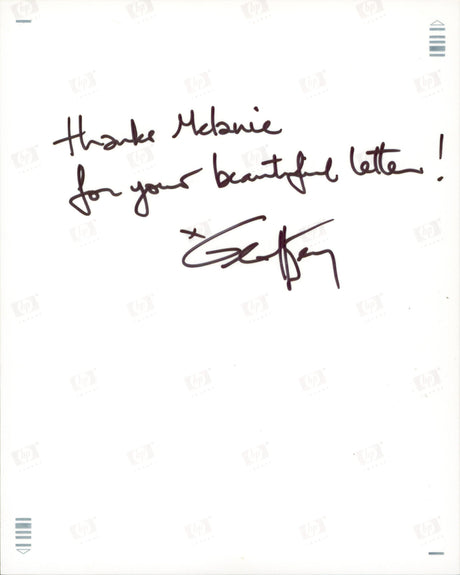 thanks Melanie
for your beautiful letter!
x Geoffrey